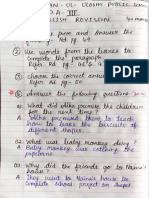 AN-UL-ULOOM PUBLIC
A-III
ENGLISH REVISION
poem and Answer the
Rd pg-69
② Use words from the leaves to
complete the paragraph
Refer Rd pg-
③ choose the correct answer
Refer Rd pg-
④ Answer the following questions
Q1. What did Alka promise the children
for the next time?
A. Alka promised them to teach
how to make the biscuits of
different shapes.
Q2. What was Baby monkey doing?
A. Baby monkey was catching the
popcorns.
Q3. Why did the friends go to Naina's
house?
A. They went to Naina's house to
complete school project on shapes.